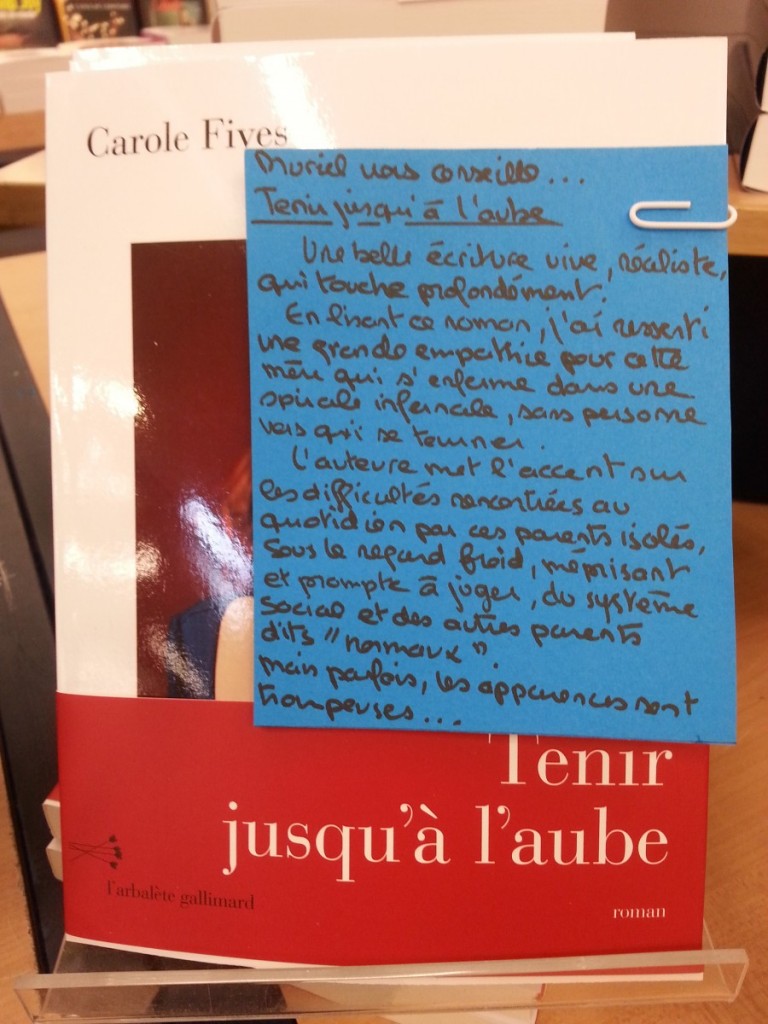 Carole Fives
Muriel vous conseille...
Tenir jusqu'à l'aube
Une belle écriture vive, réaliste,
qui touche profondément.
En lisant ce roman, j'ai ressenti
une grande empathie pour cette
mère qui s'enferme dans une
spirale infernale, sans personne
vers qui se tourner.
L'auteure met l'accent sur
les difficultés rencontrées au
quotidien par ces parents isolés,
sous le regard froid, méprisant
et prompte à juger, du système
social et des autres parents
dits "normaux".
Mais parfois, les apparences sont
trompeuses...
Tenir
jusqu'à l'aube
l'arbalète gallimard
roman